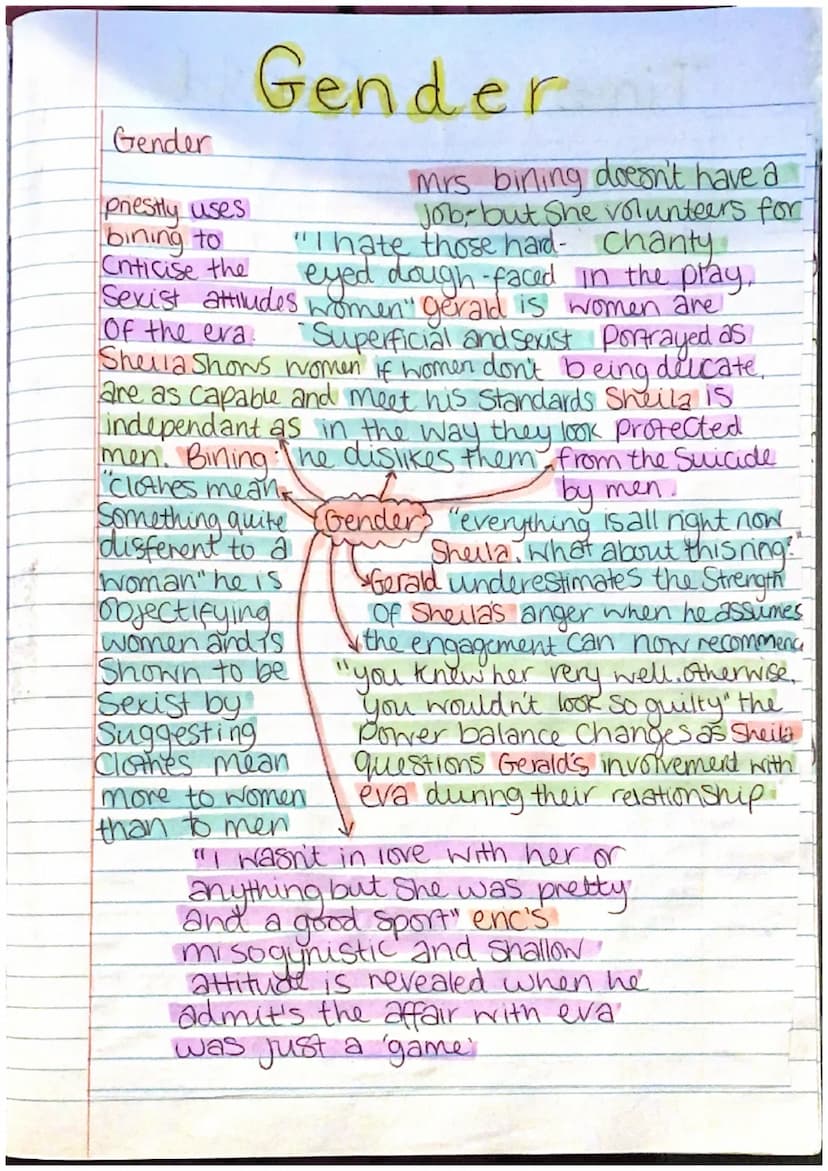 Gender
Gender
priestly uses
bining to
Criticise the
Sexist attitudes
Of the era.
Sheila Shows women
are as capable and
independant as
men.
"I hate those hard-
eyed dough-faced
women" Gerald is
Superficial and sexist
if women don't
meet his standards
in the way they look
he dislikes them
mrs bining doesn't have a
job, but she volunteers for
charity
in the play,
women are
portrayed as
being delicate,
Sheila is
protected
from the Suicide
by men.
Bining:
"clothes mean
Something quite
different to a
woman" he is
objectifying
women and is
Shown to be
Sexist by
Suggesting
Clothes mean
more to women
than to men
Gender
"everything is all right now
Sheila. What about this ring?"
Gerald underestimates the Strength
Of Sheila's anger when he assumes
the engagement can now recommence
"you knew her very well. Otherwise,
you wouldn't look so guilty" the
Power balance Changes as Sheila
questions Gerald's involvement with
eva during their relationship
"I wasn't in love with her or
anything but She was pretty
and a good sport" eric's
misogynistic and shallow
attitude is revealed when he
admit's the affair with eva
was just a 'game'